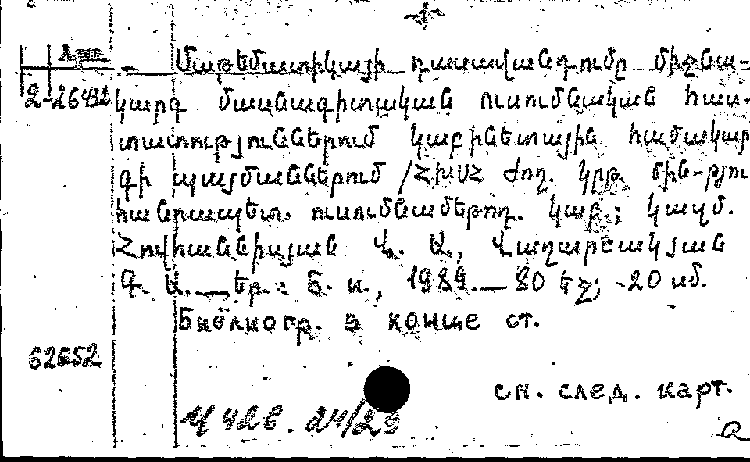 Մաթեմատիկայի դասավանդումը միջնա-
2-26492 կարգ մասնագիտական ուսումնական հաս-
տատություններում կաբինետային համակար
գի պայմաններում /ՀԽՍՀ ժող. կրթ. մին-թյու
հանրապետ. ուսումնամեթոդ. կաբ.; կազմ.
Հովհաննիսյան Վ. Ա., Վաղարշակյան
Գ. Ա. — Եր.: Б. и., 1989. — 80 էջ; -20 սմ.
Библиогр. в конце ст.
62652
сн. след. карт.